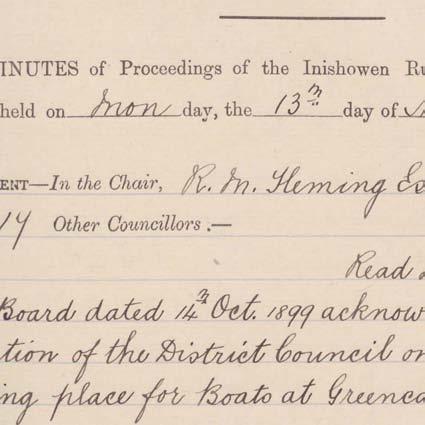 MINUTES of Proceedings of the Inishowen Ru
held on Monday, the 13th day of
ENT—In the Chair, R. M. Fleming Es
14 Other Councillors.—
Read
Board dated 14th Oct. 1899 acknow
tion of the District Council on
ing place for Boats at Greenca